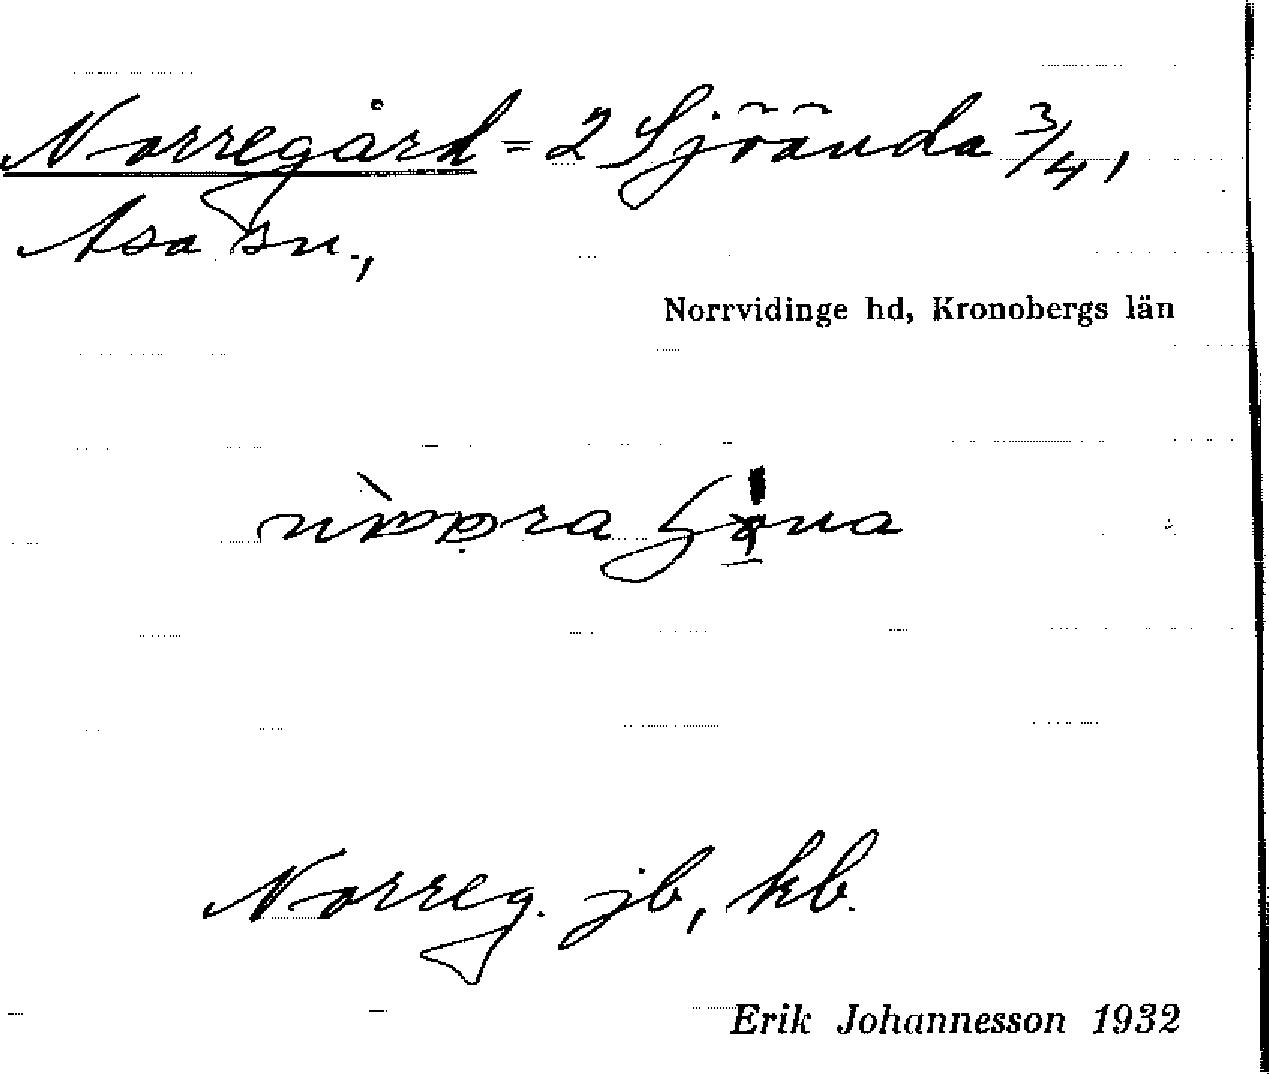 Norregård = 2 Sjöända 3/4,
Asa sn.,
Norrvidinge hd, Kronobergs län
Norreg. jb, kb.
Erik Johannesson 1932